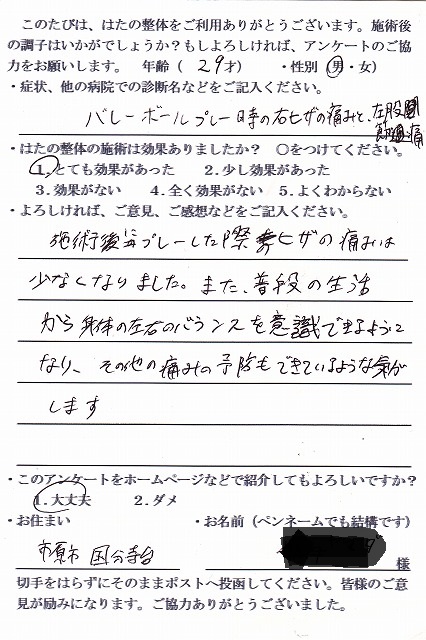 このたびは、はたの整体をご利用ありがとうございます。施術後
の調子はいかがでしょうか？もしよろしければ、アンケートのご協
力をお願いします。 年齢（ 29才） ・性別（男・女）
・症状、他の病院での診断名などをご記入ください。
バレーボールプレー時の右ヒザの痛みと、左股関
節の痛
・はたの整体の施術は効果ありましたか？ ○をつけてください。
1.とても効果があった 2.少し効果があった
3.効果がない 4.全く効果がない 5.よくわからない
・よろしければ、ご意見、ご感想などをご記入ください。
施術後プレーした際ヒザの痛みは
少なくなりました。また、普段の生活
から身体の左右のバランスを意識できるように
なり、その他の痛みの予防もできているような気が
します
・このアンケートをホームページなどで紹介してもよろしいですか？
1.大丈夫 2.ダメ
・お住まい ・お名前（ペンネームでも結構です）
市原市 国分寺台 様
切手をはらずにそのままポストへ投函してください。皆様のご意
見が励みになります。ご協力ありがとうございました。